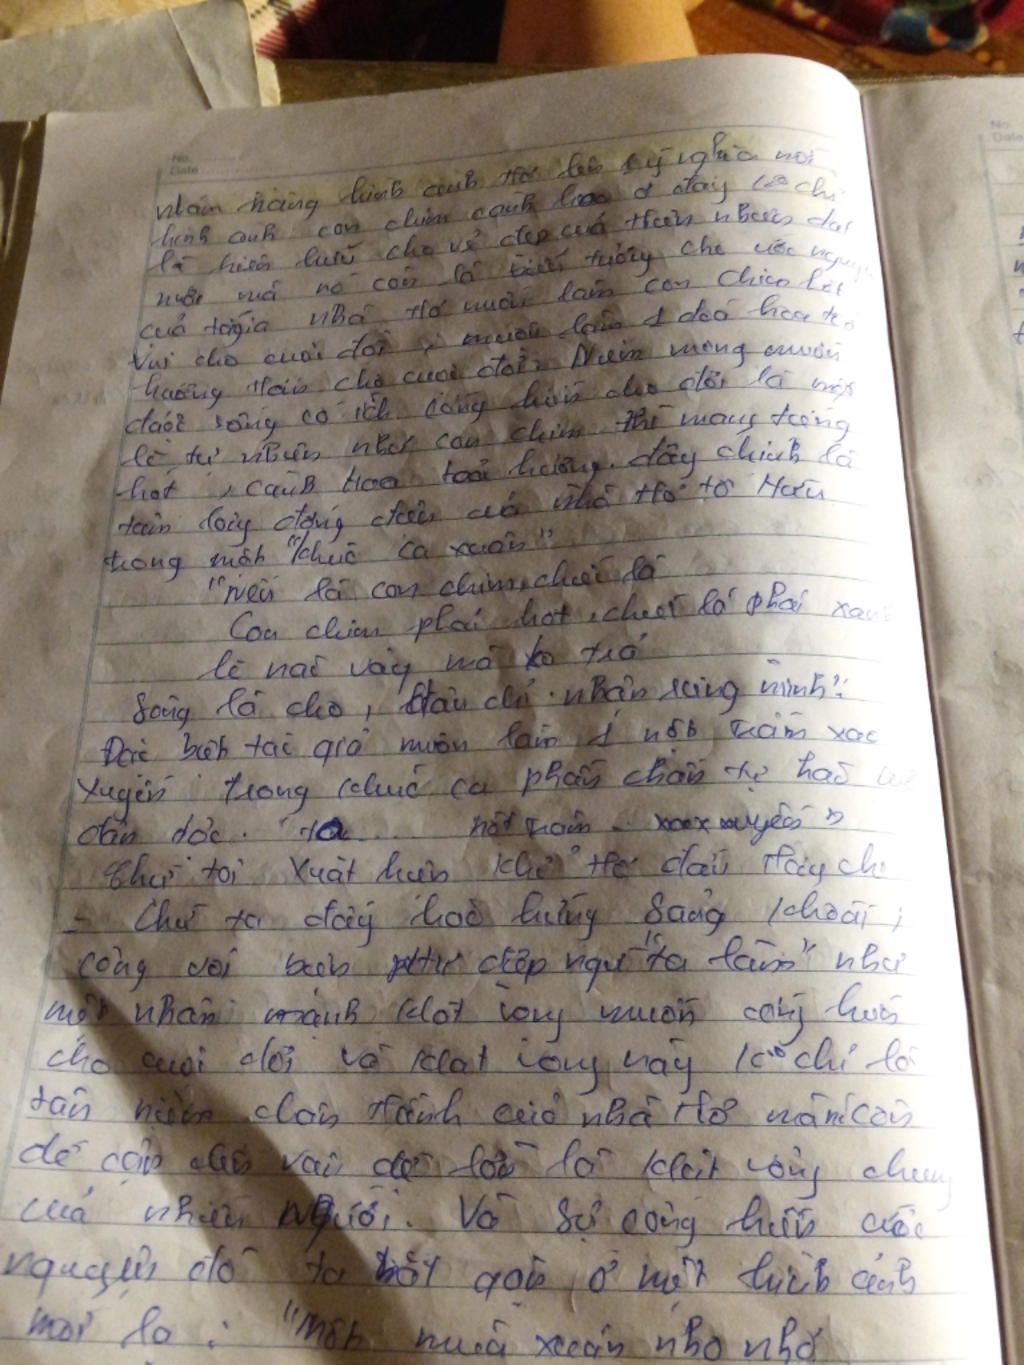 No.
Date
nhằm những hình ảnh thơ lên ý nghĩa mới
hình ảnh con chim cành hoa ở đây ko chỉ
là hiện hữu cho vẻ đẹp của thiên nhiên đất
nước mà nó còn là biểu tượng cho ước nguyện
của tác giả nhà thơ muốn làm con chim hót
vui cho cuộc đời, muốn làm 1 đoá hoa toả
hương thơm cho cuộc đời. Niềm mong muốn
được sống có ích cống hiến cho đời là một
lẽ tự nhiên như con chim thì mang tiếng
hót, cành hoa toả hương. đây chính là
đồng điệu của nhà thơ Tố Hữu
trong một "khúc ca xuân"
"Nếu là con chim, chiếc lá
Con chim phải hót, chiếc lá phải xanh
lẽ nào vay mà ko trả
Sống là cho, đâu chỉ nhận riêng mình".
Đặc biệt tác giả muốn làm 1 nốt trầm xao
xuyến trong khúc ca phấn chấn tự hào
dân tộc. "ta nốt trầm xao xuyến"
Chữ tôi xuất hiện khổ thơ đầu thay cho
- Chữ ta đầy hào hứng sảng khoái,
cùng với biện pháp điệp ngữ "ta làm" như
một nhấn mạnh khát vọng muốn cống hiến
cho cuộc đời và khát vọng này ko chỉ là
tâm niệm chân thành của nhà thơ mà còn
đề cập đến vấn đề lớn là khát vọng chung
của nhiều người. Và sự cống hiến ước
nguyện đó ta bắt gặp ở một hình ảnh
mới lạ: "Một mùa xuân nho nhỏ